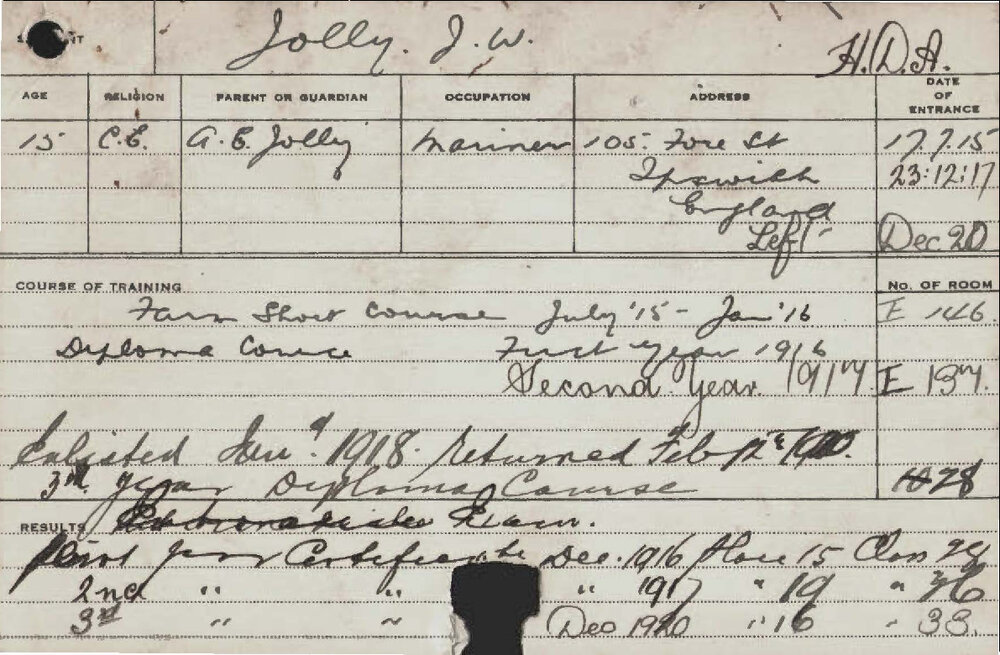 Jolly. J. W.
H.D.A.
AGE RELIGION PARENT OR GUARDIAN OCCUPATION ADDRESS DATE OF ENTRANCE
15 C.E. A. E. Jolly Mariner 105. Fore St 17.7.15
Ipswich 23:12:17
England
Left Dec. 20
COURSE OF TRAINING No. OF ROOM
Farm Short Course July '15 - Jan '16 E 146
Diploma Course First Year 1916
Second Year 1917 E 137.
Enlisted Jany 1918. Returned Feb 12th
3rd. Year Diploma Course H 28
RESULTS Exam.
First Year Certificate Dec. 1916 Place 15 Class 29
2nd " " " 1917 " 19 " 36
3rd " " Dec 1920 " 16 " 33.